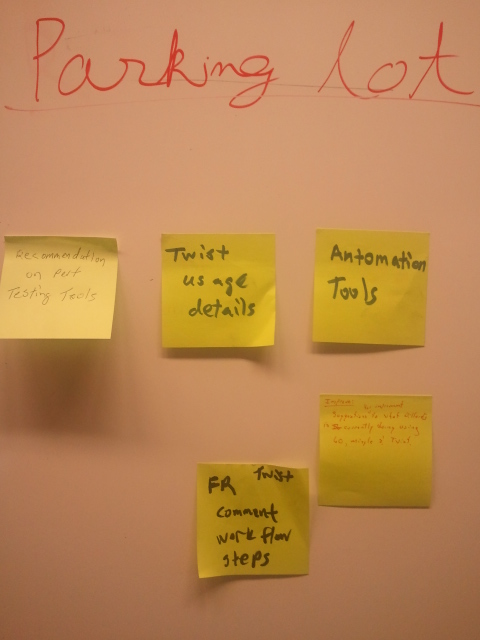 Parking lot
Recommendation
on Perf
Testing Tools
Twist
usage
details
Automation
Tools
Suggestion to what
is currently being using
FR Twist
comment
work flow
steps